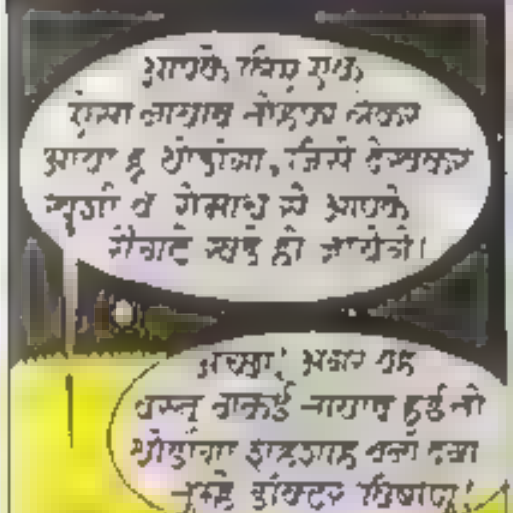 आपके लिए एक
ऐसा नायाब तोहफा लेकर
आया हूं थोडांगा, जिसे देखकर
खुशी व रोमांच से आपके
रोंगटे खड़े हो जायेंगे।
अच्छा! अगर यह
वस्तु वाकई नायाब हुई तो
थोडांगा शहंशाह बना देगा
तुम्हें डॉक्टर